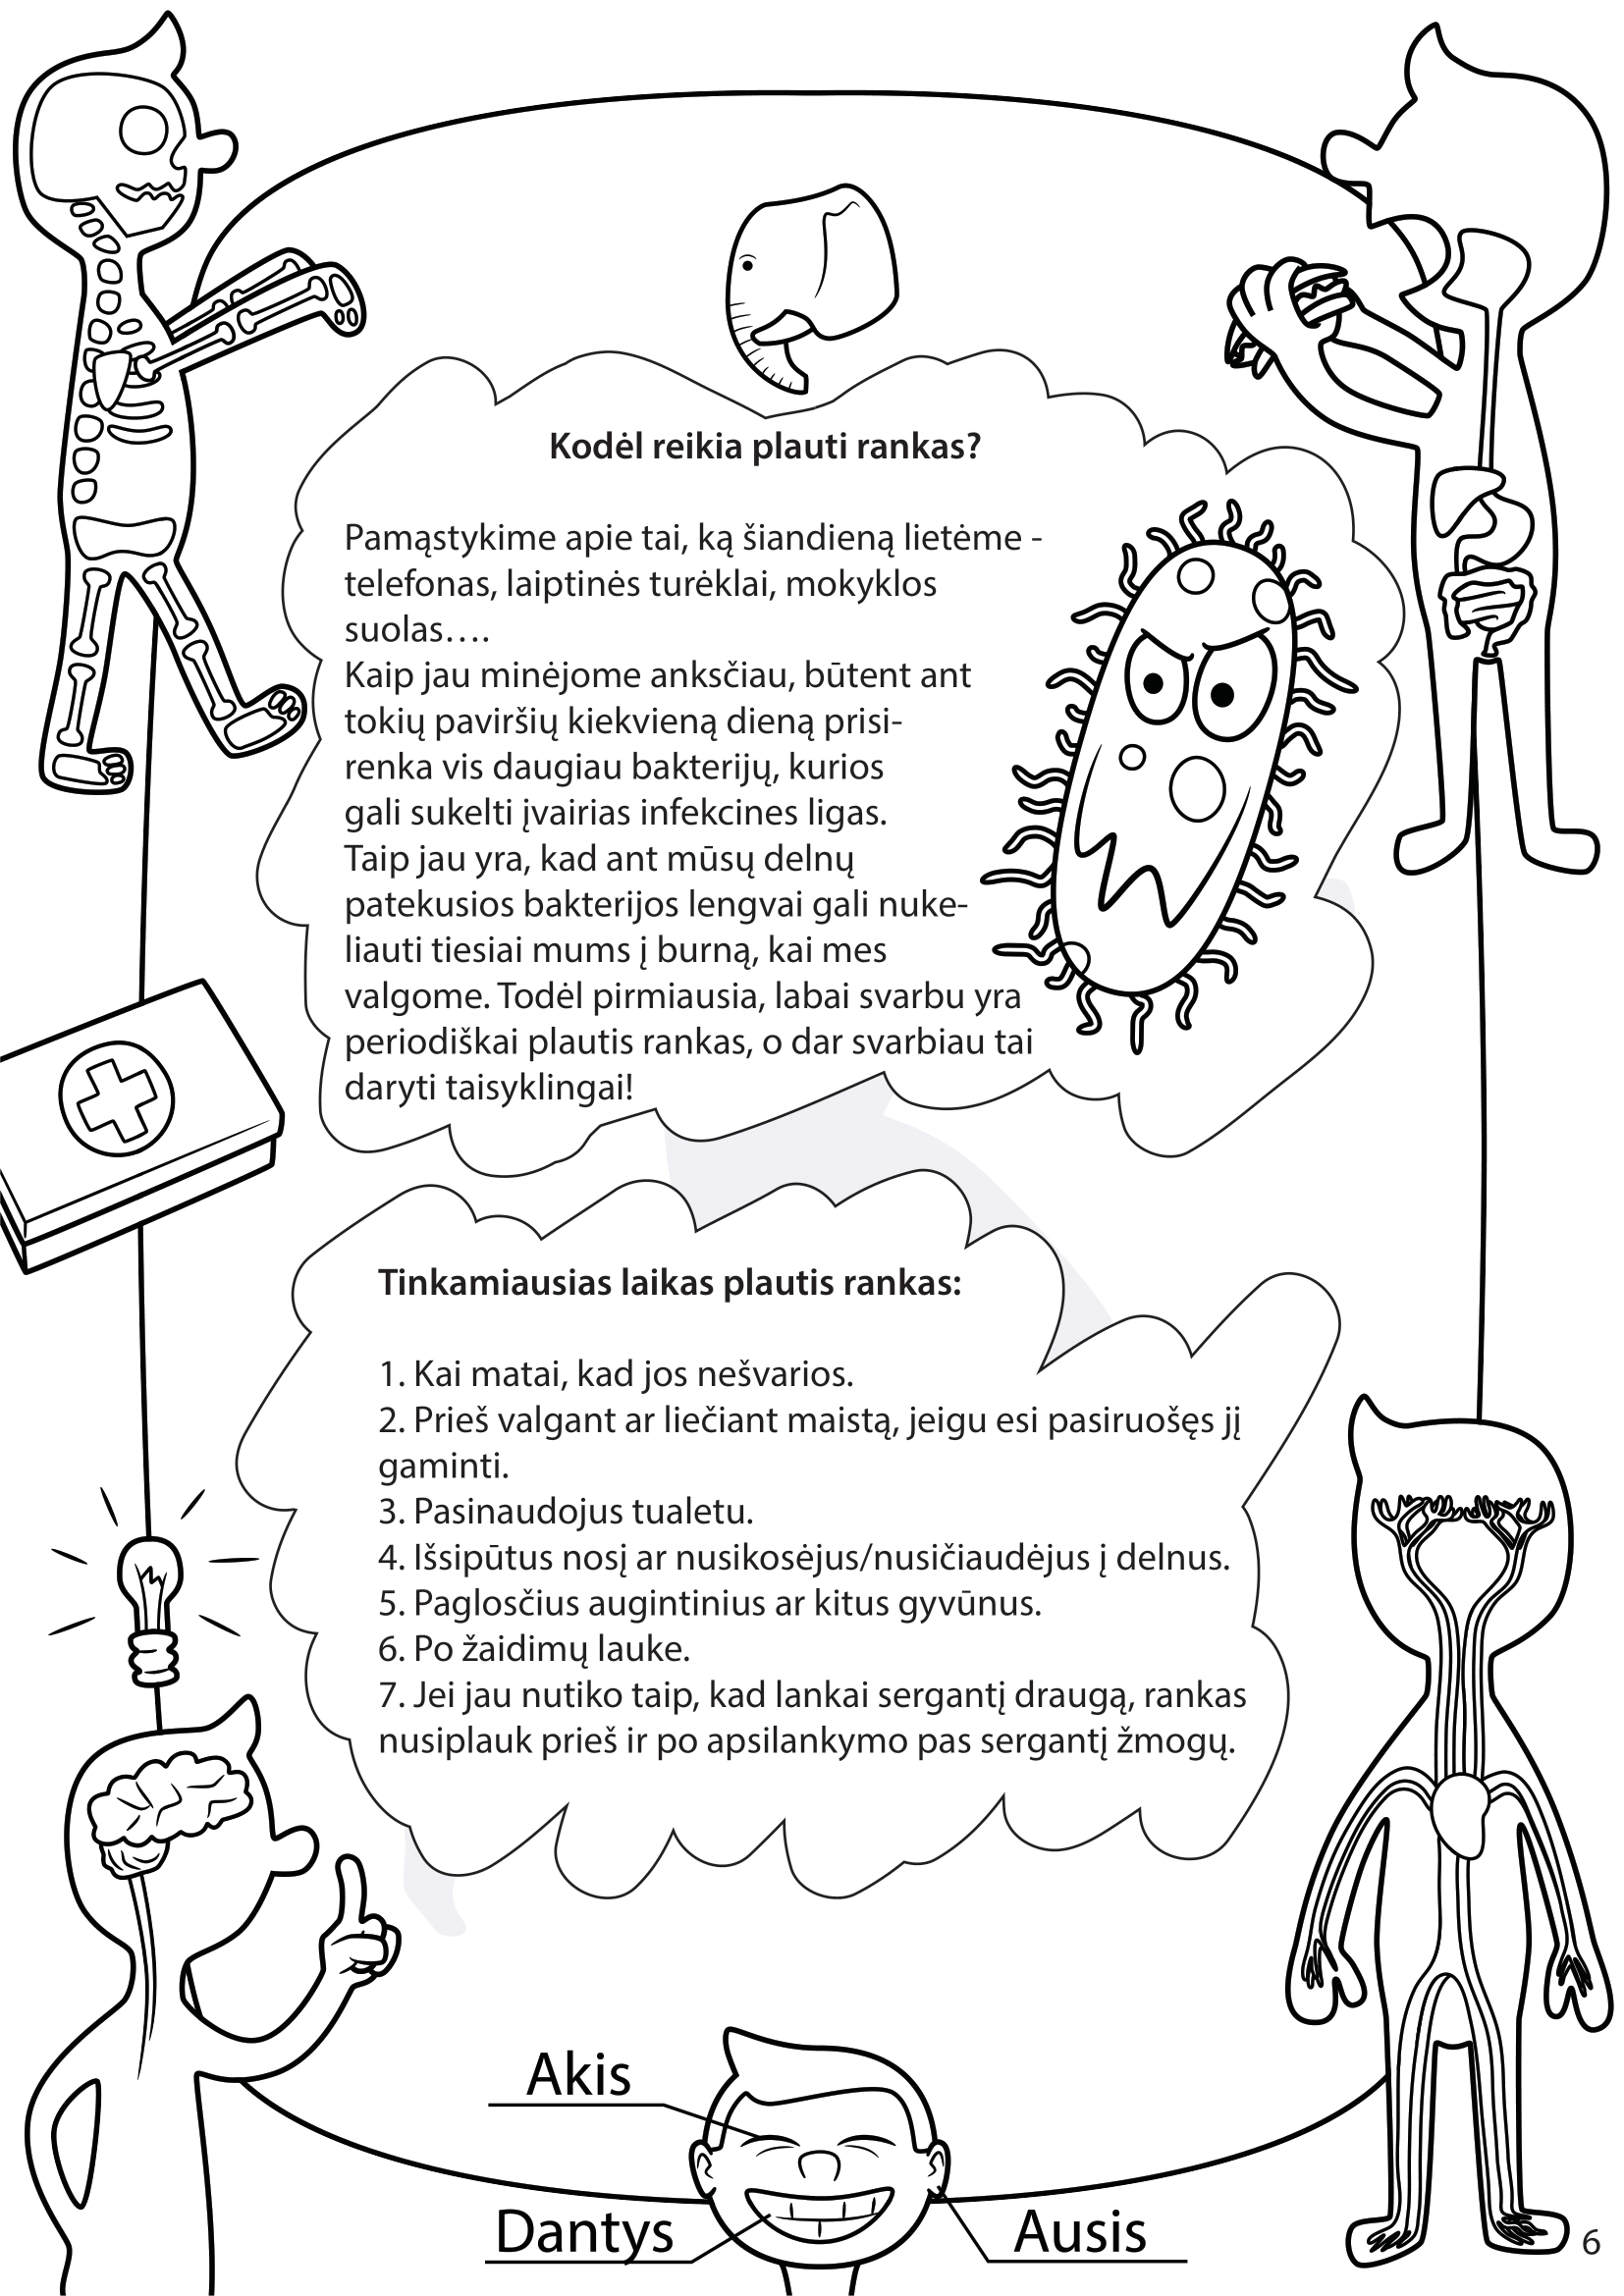 Kodėl reikia plauti rankas?
Pamąstykime apie tai, ką šiandieną lietėme -
telefonas, laiptinės turėklai, mokyklos
suolas….
Kaip jau minėjome anksčiau, būtent ant
tokių paviršių kiekvieną dieną prisi-
renka vis daugiau bakterijų, kurios
gali sukelti įvairias infekcines ligas.
Taip jau yra, kad ant mūsų delnų
patekusios bakterijos lengvai gali nuke-
liauti tiesiai mums į burną, kai mes
valgome. Todėl pirmiausia, labai svarbu yra
periodiškai plautis rankas, o dar svarbiau tai
daryti taisyklingai!
Tinkamiausias laikas plautis rankas:
1. Kai matai, kad jos nešvarios.
2. Prieš valgant ar liečiant maistą, jeigu esi pasiruošęs jį
gaminti.
3. Pasinaudojus tualetu.
4. Išsipūtus nosį ar nusikosėjus/nusičiaudėjus į delnus.
5. Paglosčius augintinius ar kitus gyvūnus.
6. Po žaidimų lauke.
7. Jei jau nutiko taip, kad lankai sergantį draugą, rankas
nusiplauk prieš ir po apsilankymo pas sergantį žmogų.
Akis
Dantys
Ausis
6